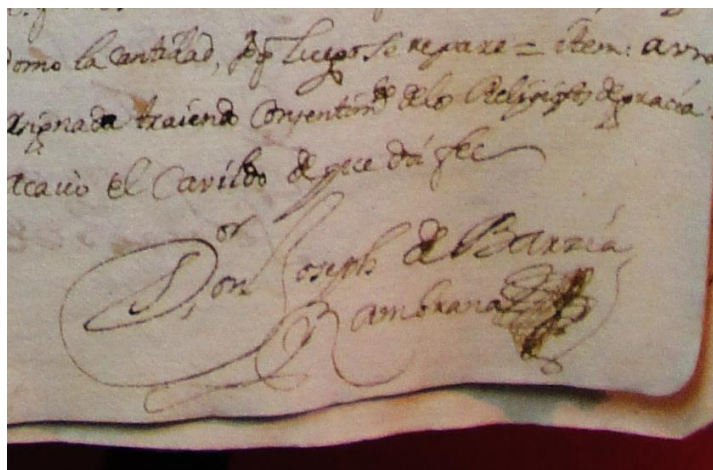 como la cantidad, pª q̃ luego se repare = item: a
asignada traiendo Consentimto delos Religiosos de gracia
acavò el Cavildo de que dá fee
Dor
Don Joseph de Barzia
Zambrana